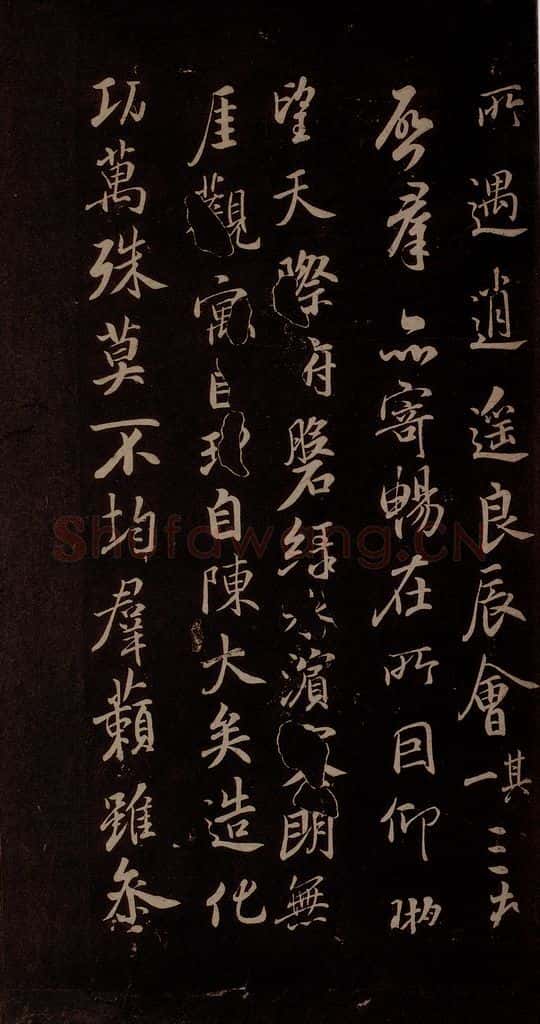 所遇逍遥良辰會其一三春
啓羣品寄暢在所因仰眺
望天際俯磐緑水濱寥朗無
厓觀寓目理自陳大矣造化
功萬殊莫不均羣藾雖叅
Shufawang.CN